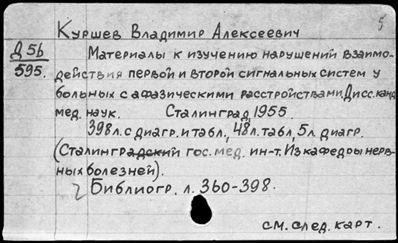 5
Куршев Владимир Алексеевич
Д 56
595.
Материалы к изучению нарушений взаимо-
действия первой и второй сигнальных систем у
больных с афазическими расстройствами. Дисс. канд.
мед. наук. Сталинград 1955.
398 л. с диагр. и табл., 48 л. табл, 5 л диагр.
(Сталинградский гос. мед. ин-т. Из кафедры нерв-
ных болезней).
Библиогр. л. 360-398.
см. след. карт.